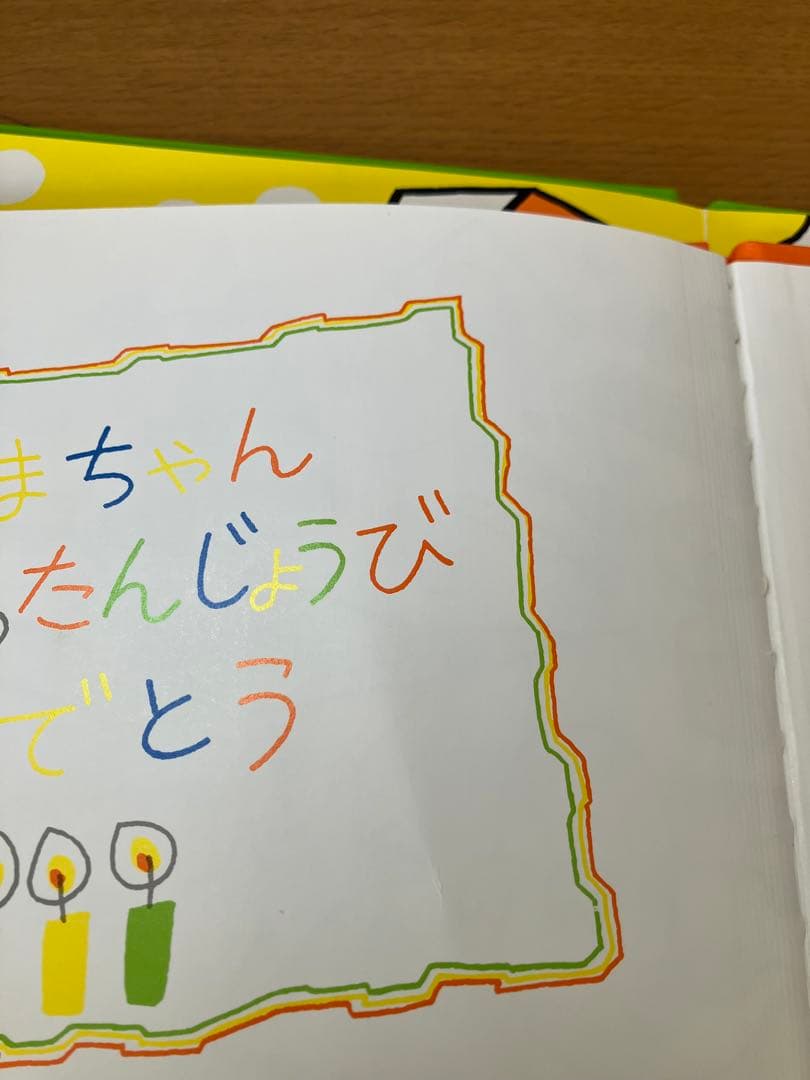 まちゃん
たんじょうび
でとう